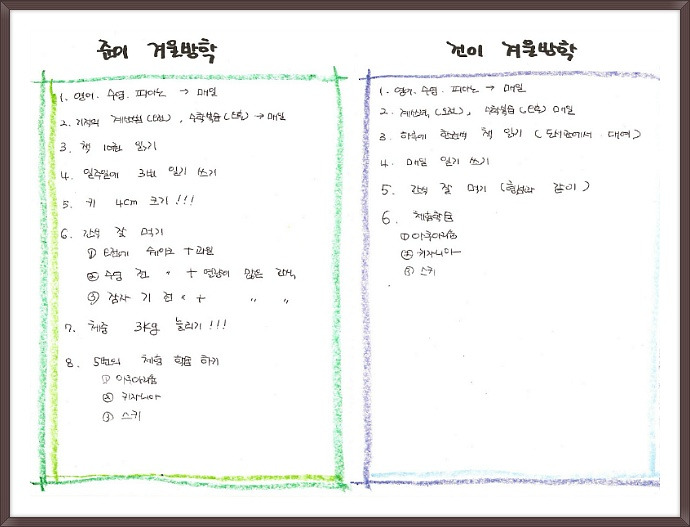 준이 겨울방학
1. 영어. 수영. 피아노 → 매일
2. 기적의 계산법 (오전), 수학복습 (오후) → 매일
3. 책 100권 읽기
4. 일주일에 3번 일기 쓰기
5. 키 4cm 크기!!!
6. 간식 잘 먹기
① 오전에 쉐이크 + 과일
② 수영 전 〃 + 영양이 많은 간식
③ 잠자기 전 〃 + 〃 〃
7. 체중 3kg 늘리기!!!
8. 5번의 체험 학습 하기
① 아쿠아리움
② 키자니아
③ 스키
건이 겨울방학
1. 영어. 수영. 피아노 → 매일
2. 계산법 (오전), 수학복습 (오후) 매일
3. 하루에 한권씩 책 읽기 (도서관에서 대여)
4. 매일 일기 쓰기
5. 간식 잘 먹기 (형아와 같이)
6. 체험학습
① 아쿠아리움
② 키자니아
③ 스키